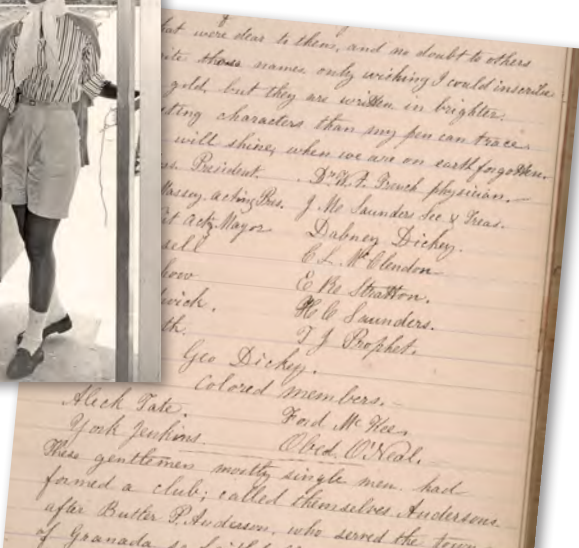 that were dear to them, and no doubt to others
those names only wishing I could inscribe
gold, but they are written in brighter,
characters than my pen can trace
will shine, when we are on earth forgotten.
President. Dr. W. A. French physician.
Massey, acting Pres. J. M. Saunders Sec & Treas.
actg Mayor Dabney Dickey.
C. L. McClendon
E Stratton.
H. C. Saunders.
th. T J Prophet.
Geo Dickey.
Colored members.
Aleck Tate. Ford McKee.
York Jenkins. Obed O'Neal.
These gentlemen mostly single men had
formed a club; called themselves Andersons
after Butler P. Anderson, who served the town
of Granada so